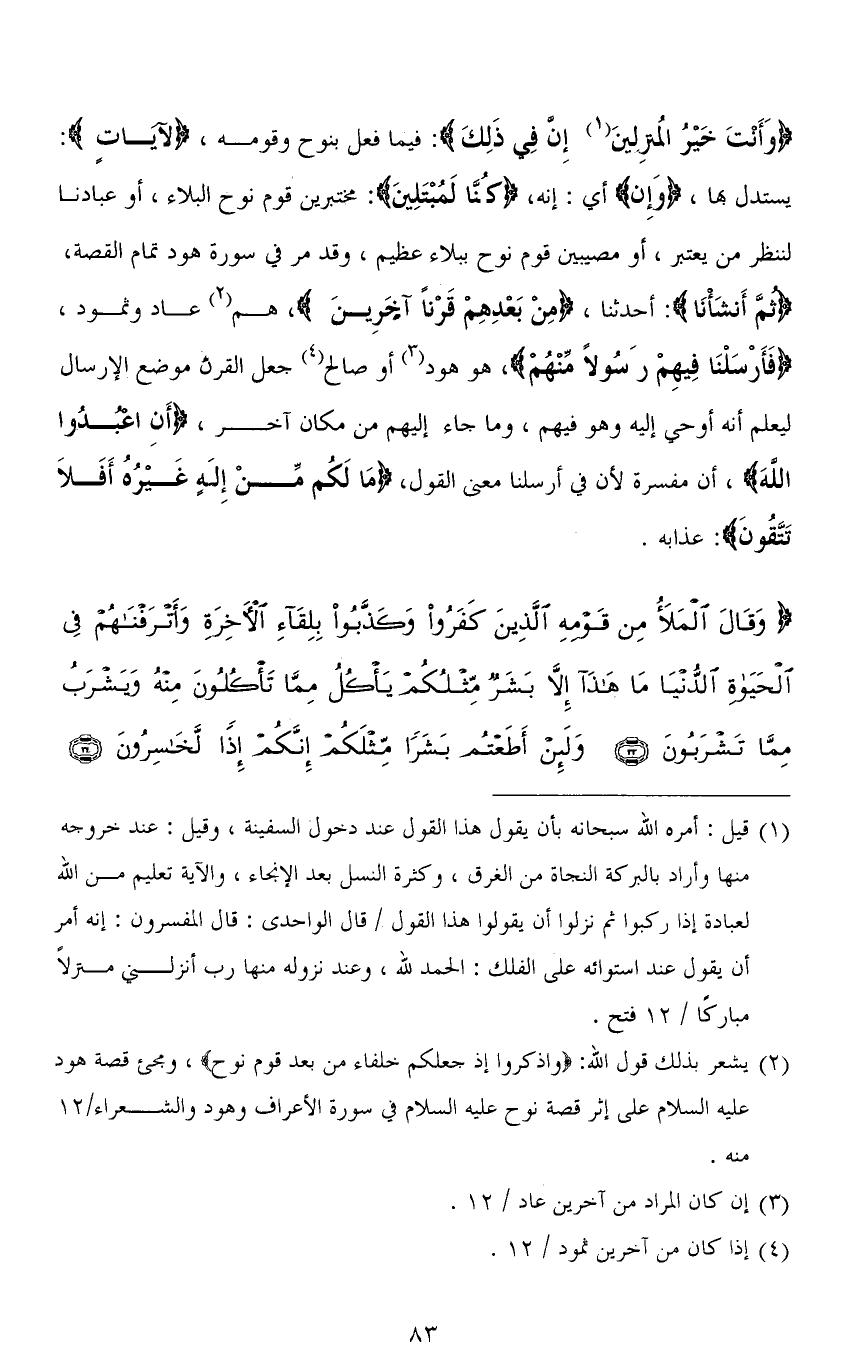 ﴿وَأَنْتَ خَيْرُ الْمُنزِلِينَ(١) إِنَّ فِي ذَلِكَ﴾: فيما فعل بنوح وقومـــه ، ﴿لآيَـــاتٍ﴾:
يستدل بها ، ﴿وَإِن﴾ أي : إنه، ﴿كُنَّا لَمُبْتَلِينَ﴾: مختبرين قوم نوح البلاء ، أو عبادنـا
لننظر من يعتبر ، أو مصيبين قوم نوح ببلاء عظيم ، وقد مر في سورة هود تمام القصة،
﴿ثُمَّ أَنشَأْنَا﴾: أحدثنا ، ﴿مِنْ بَعْدِهِمْ قَرْناً آخَرِيـنَ ﴾، هـــم(٢) عـــاد وثمـــود ،
﴿فَأَرْسَلْنَا فِيهِمْ رَسُولاً مِّنْهُمْ﴾، هو هود(٣) أو صالح(٤) جعل القرن موضع الإرسال
ليعلم أنه أوحي إليه وهو فيهم ، وما جاء إليهم من مكان آخـــــر ، ﴿أَنِ اعْبُـــدُوا
اللَّهَ﴾ ، أن مفسرة لأن في أرسلنا معنى القول، ﴿مَا لَكُم مِّـــنْ إِلَهٍ غَـــيْرُهُ أَفَـــلاَ
تَتَّقُونَ﴾: عذابه .
﴿ وَقَالَ ٱلْمَلَأُ مِن قَوْمِهِ ٱلَّذِينَ كَفَرُواْ وَكَذَّبُواْ بِلِقَآءِ ٱلْأَخِرَةِ وَأَتْرَفْنَـٰهُمْ فِى
ٱلْحَيَوٰةِ ٱلدُّنْيَا مَا هَـٰذَآ إِلَّا بَشَرٌ مِّثْلُكُمْ يَأْكُلُ مِمَّا تَأْكُلُونَ مِنْهُ وَيَشْرَبُ
مِمَّا تَشْرَبُونَ ٣٣ وَلَئِنْ أَطَعْتُم بَشَرًا مِّثْلَكُمْ إِنَّكُمْ إِذًا لَّخَـٰسِرُونَ ٣٤
(١) قيل : أمره الله سبحانه بأن يقول هذا القول عند دخول السفينة ، وقيل : عند خروجه
منها وأراد بالبركة النجاة من الغرق ، وكثرة النسل بعد الإنجاء ، والآية تعليم مــن الله
لعبادة إذا ركبوا ثم نزلوا أن يقولوا هذا القول / قال الواحدى : قال المفسرون : إنه أمر
أن يقول عند استوائه على الفلك : الحمد لله ، وعند نزوله منها رب أنزلـــني مـــنزلاً
مباركًا / ١٢ فتح .
(٢) يشعر بذلك قول الله: ﴿واذكروا إذ جعلكم خلفاء من بعد قوم نوح﴾ ، ومجئ قصة هود
عليه السلام على إثر قصة نوح عليه السلام في سورة الأعراف وهود والشـــعراء/١٢
منه .
(٣) إن كان المراد من آخرين عاد / ١٢ .
(٤) إذا كان من آخرين ثمود / ١٢ .
٨٣